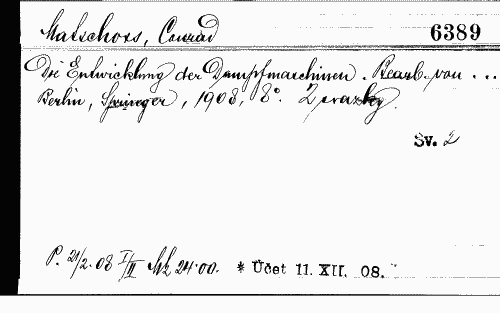 Matschoss, Conrad 6389
Die Entwicklung der Dampfmaschinen. Bearb. von ...
Berlin, Springer, 1908, 8°. 2 svazky.
Sv. 2
P. 21/2.08 I/II Mk 24.00. * Účet 11. XII. 08.